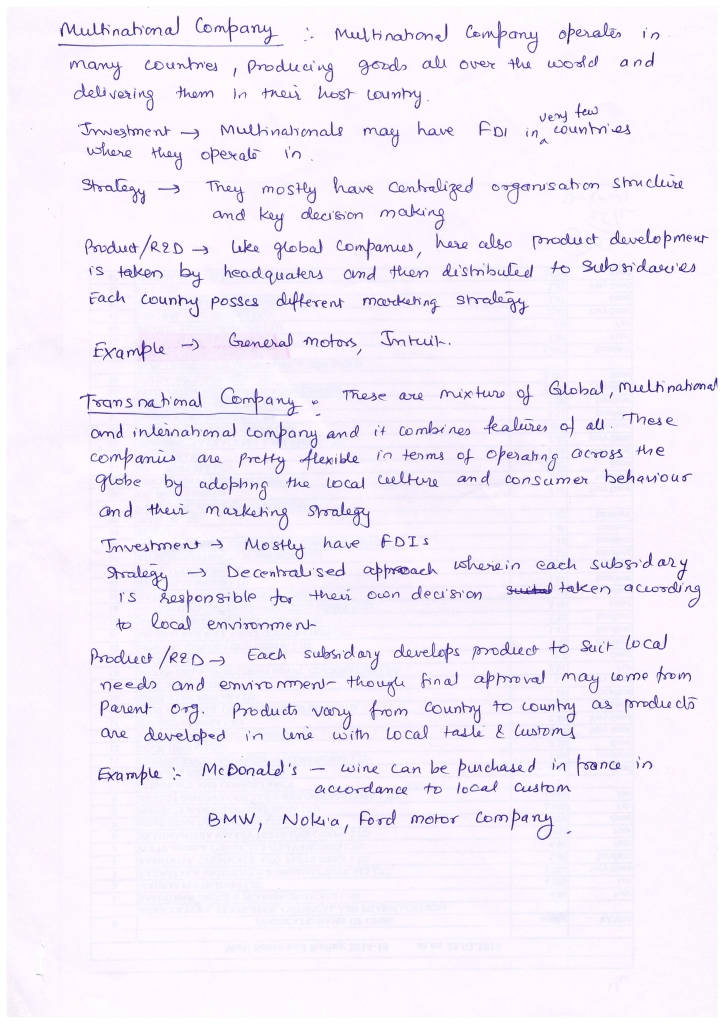 Multinational Company :- Multinational Company operates in
many countries, producing goods all over the world and
delivering them in their host country.
Investment → Multinationals may have FDI in very few countries
where they operate in.
Strategy → They mostly have centralized organisation structure
and key decision making
Product/R&D → like global companies, here also product development
is taken by headquaters and then distributed to subsidaries
Each country posses different marketing strategy
Example → General motors, Intuit.
Transnational Company :- These are mixture of Global, multinational
and international company and it combines features of all. These
companies are pretty flexible in terms of operating across the
globe by adopting the local culture and consumer behaviour
and their marketing strategy
Investment → Mostly have FDIs
Strategy → Decentralised approach wherein each subsidary
is responsible for their own decision taken according
to local environment
Product/R&D → Each subsidary develops product to suit local
needs and environment though final approval may come from
Parent Org. Products vary from country to country as products
are developed in line with local taste & customs
Example :- McDonald's – wine can be purchased in france in
accordance to local custom
BMW, Nokia, Ford motor company.